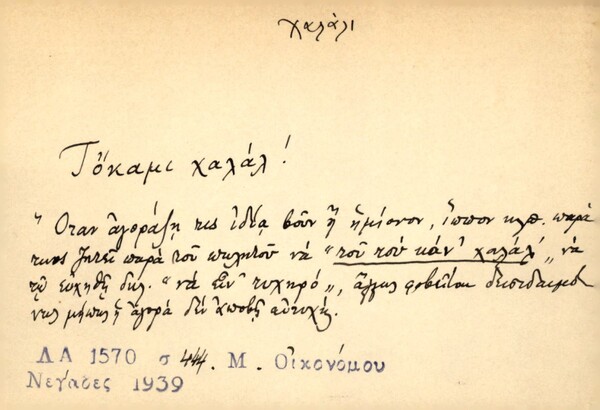 χαλάλι
Τὄκαμι χαλάλ!
Ὅταν ἀγοράζῃ τις ἰδίᾳ βοῦν ἢ ἡμίονον, ἵππον κλπ. παρά
τινος ζητεῖ παρὰ τοῦ πωλητοῦ νὰ "τοῦ τοὺ κάν' χαλάλ'„ νὰ
τῷ εὐχηθῇ δηλ. "νὰ εἶν' τυχηρό„, ἄλλως φοβεῖται δεισιδαιμό
νως μήπως ἡ ἀγορὰ δὲν ἀποβῇ εὐτυχής.
ΛΑ 1570 σ 444. Μ. Οἰκονόμου
Νεγάδες 1939